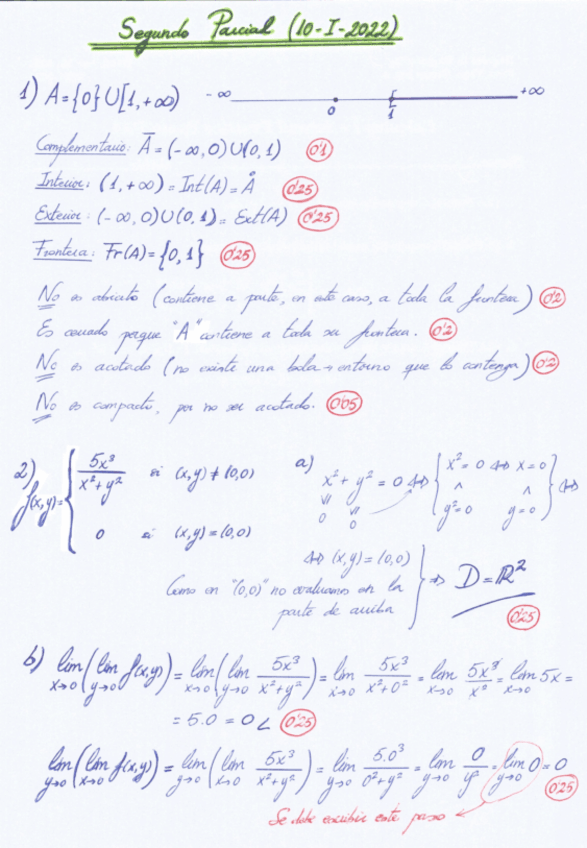 Segundo Parcial (10-I-2022)
1) A={0}∪[1,+∞) -∞ 0 [ 1 +∞
Complementario: Ā=(-∞,0)∪(0,1) 0'1
Interior: (1,+∞)=Int(A)=Å 0'25
Exterior: (-∞,0)∪(0,1)=Ext(A) 0'25
Frontera: Fr(A)={0,1} 0'25
No es abierto (contiene a parte, en este caso, a toda la frontera) 0'2
Es cerrado porque "A" contiene a toda su frontera. 0'2
No es acotado (no existe una bola→entorno que lo contenga) 0'2
No es compacto, por no ser acotado. 0'05
2) f(x,y)= { 5x³/(x²+y²) si (x,y)≠(0,0)
0 si (x,y)=(0,0)
a) x²+y²=0 ⇔ { x²=0 ⇔ x=0 ∧ ∧ y²=0 y=0 } ⇔
⇔ (x,y)=(0,0)
Como en "(0,0)" no evaluamos en la
parte de arriba } ⇒ D=ℝ² 0'25
b) lim x→0 (lim y→0 f(x,y)) = lim x→0 (lim y→0 5x³/(x²+y²)) = lim x→0 5x³/(x²+0²) = lim x→0 5x³/x² = lim x→0 5x =
= 5.0 = 0 0'25
lim y→0 (lim x→0 f(x,y)) = lim y→0 (lim x→0 5x³/(x²+y²)) = lim y→0 5.0³/(0²+y²) = lim y→0 0/y² = lim y→0 0 = 0 0'25
Se debe escribir este paso